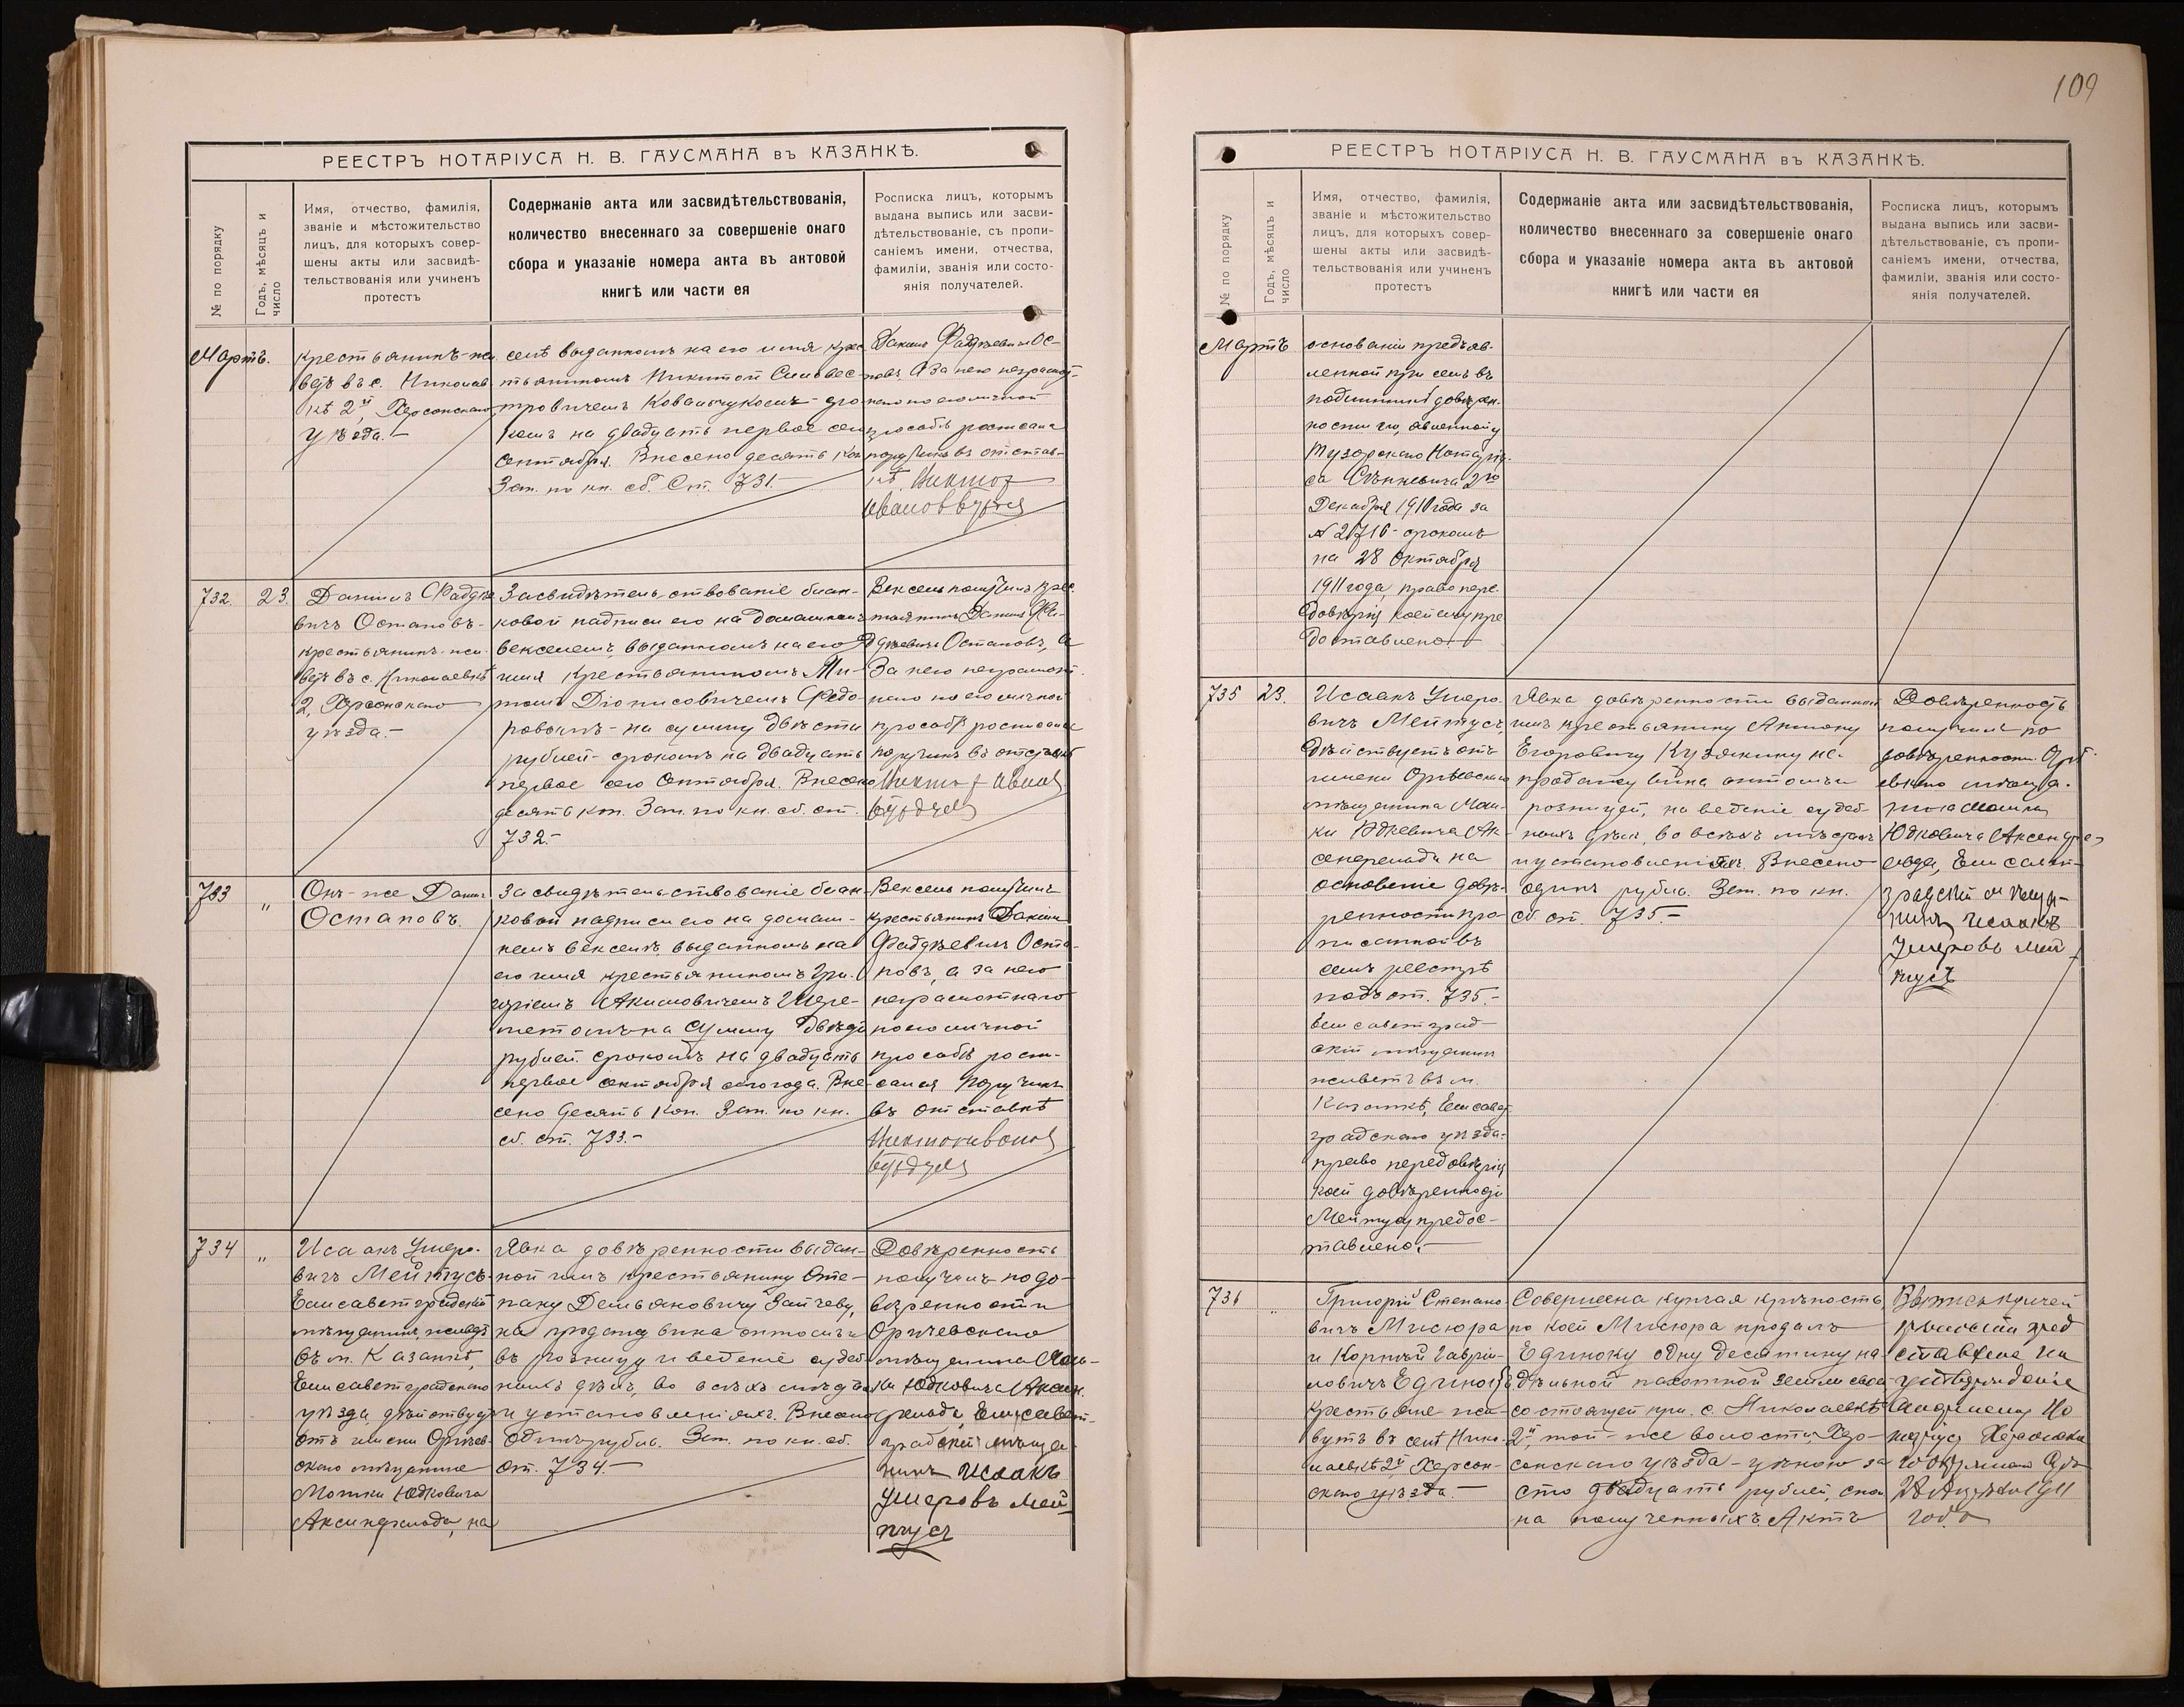 109
РЕЕСТРЪ НОТАРІУСА Н. В. ГАУСМАНА въ КАЗАНКѢ.
№ по порядку
Годъ, мѣсяцъ и
число
Имя, отчество, фамилія,
званіе и мѣстожительство
лицъ, для которыхъ совер-
шены акты или засвидѣ-
тельствованія или учиненъ
протестъ
Содержаніе акта или засвидѣтельствованія,
количество внесеннаго за совершеніе онаго
сбора и указаніе номера акта въ актовой
книгѣ или части ея
Росписка лицъ, которымъ
выдана выпись или засви-
дѣтельствованіе, съ пропи-
саніемъ имени, отчества,
фамиліи, званія или состо-
янія получателей.
Мартъ.
крестьянинъ-жи
ветъ въ с. Николаев
кѣ 2й, Херсонскаго
уѣзда.-
семъ выданномъ на его имя крес
тьяниномъ Никитой Сильвес-
тровичемъ Ковальчукомъ-сро
комъ на двадцать первое сен
сентября. Внесено десять коп
Зап. по кн. сб. Ст. 731.-
Данилъ Фаддѣевичъ Ос-
повъ, а за него неграмот-
наго по его личной
просьбѣ росписался
поручикъ въ отстав-
кѣ
732.
23.
Даніилъ Фаддѣе
вичъ Остаповъ-
крестьянинъ-жи-
ветъ въ с. Николаевкѣ
2, Херсонскаго
уѣзда.-
Засвидѣтельствованіе блан-
ковой надписи его на домашнемъ
векселемъ, выданномъ на его
имя крестьяниномъ Ми-
Діонисовичемъ Федо-
ровымъ-на сумму двѣсти
рублей-срокомъ на двадцать
первое сего Сентября. Внесено
десять коп. Зап. по кн. сб. ст.
732.-
Вексель получилъ крес
тьянинъ Данилъ Фа-
ддѣевичъ Остаповъ, а
за него неграмот
наго по его личной
просьбѣ росписался
поручикъ въ отставкѣ
733
"
Онъ-же Данилъ
Остаповъ.
Засвидѣтельствованіе блан-
ковой надписи его на домаш-
немъ векселѣ, выданномъ на
его имя крестьяниномъ Гри-
горіемъ Акимовичемъ Шере-
метомъ на сумму двѣсти
рублей. срокомъ на двадцать
первое сентября сего года. Вне-
сено десять коп. Зап. по кн.
сб. ст. 733.-
Вексель получилъ
крестьянинъ Даніилъ
Фаддѣевичъ Оста-
повъ, а за него
неграмотнаго
по его личной
просьбѣ роспи-
сался Поручикъ
въ отставкѣ
734
"
Исаакъ Умеро-
вичъ Мейтусъ-
Елисаветградскій
мѣщанинъ, живетъ
въ м. Казанкѣ,
Елисаветградскаго
уѣзда, дѣйствуетъ
отъ имени Оргѣев-
скаго мѣщанина
Мошки Юдковича
на
Явка довѣренности выдан-
ной имъ крестьянину Сте-
пану Демьяновичу Зайчеву,
на продажу вина оптомъ и
въ розницу и веденіе судеб-
ныхъ дѣлъ, во всѣхъ мѣстахъ
и установленіяхъ. Внесено
одинъ рубль. Зап. по кн. сб.
ст. 734.-
Довѣренность
получилъ по до-
вѣренности
Оргѣевскаго
мѣщанина Мош-
ки Юдковича
Елисавет-
градскій мѣща
нинъ Исаакъ
Умеровъ Мей
тусъ
РЕЕСТРЪ НОТАРІУСА Н. В. ГАУСМАНА въ КАЗАНКѢ.
№ по порядку
Годъ, мѣсяцъ и
число
Имя, отчество, фамилія,
званіе и мѣстожительство
лицъ, для которыхъ совер-
шены акты или засвидѣ-
тельствованія или учиненъ
протестъ
Содержаніе акта или засвидѣтельствованія,
количество внесеннаго за совершеніе онаго
сбора и указаніе номера акта въ актовой
книгѣ или части ея
Росписка лицъ, которымъ
выдана выпись или засви-
дѣтельствованіе, съ пропи-
саніемъ имени, отчества,
фамиліи, званія или состо-
янія получателей.
Мартъ
основаніи предъяв-
ленной при семъ въ
подлинникѣ довѣрен-
ности его, явленной у
Нотаріу-
са 2го
Декабря 1910 года за
№ 21716-срокомъ
на 28 Октября
1911 года, право пере-
довѣрія коей ему пре
доставлено.
735
23.
Исаакъ Умеро-
вичъ Мейтусъ,
дѣйствуетъ отъ
имени Оргѣевскаго
мѣщанина Мош-
ки Юдковича Ак-
на
основаніе довѣ-
ренности про-
писанной въ
семъ реестрѣ
подъ ст. 735.-
Елисаветград-
скій мѣщанинъ
живетъ въ м.
Казанкѣ, Елисавет
градскаго уѣзда-
право передовѣрія
коей довѣренности
Мейтусу предос-
тавлено.-
Явка довѣренности выданной
имъ крестьянину Антону
Егоровичу Кузякину на
продажу вина оптомъ и
розницей, на веденіе судеб-
ныхъ дѣлъ, во всѣхъ мѣстахъ
и установленіяхъ. Внесено
одинъ рубль. Зап. по кн.
сб ст. 735.-
Довѣренность
получилъ по
довѣренности Орг-
ѣевскаго мѣща-
нина Мошки
Юдковича
Елисавет-
градскій мѣща-
нинъ Исаакъ
Умеровъ Мей
тусъ
736
"
Григорій Степано-
вичъ Мисюра
и Корнѣй Гаврии-
ловичъ Единокъ
крестьяне жи-
вутъ въ селѣ Нико-
лаевкѣ 2й, Херсон-
скаго уѣзда.-
Совершена купчая крѣпость,
по коей Мисюра продалъ
Единоку одну десятину на-
дѣльной пахотной земли своей
состоящей при с. Николаевкѣ
2й, той-же волости, Хер-
сонскаго уѣзда-цѣною за
сто двадцать рублей,
на полученныхъ. Актъ
Выпись купчей
пред
ставлена на
утвержденіе
Старшему Но
таріусу Херсонска
го Окружнаго Суда
1911
года